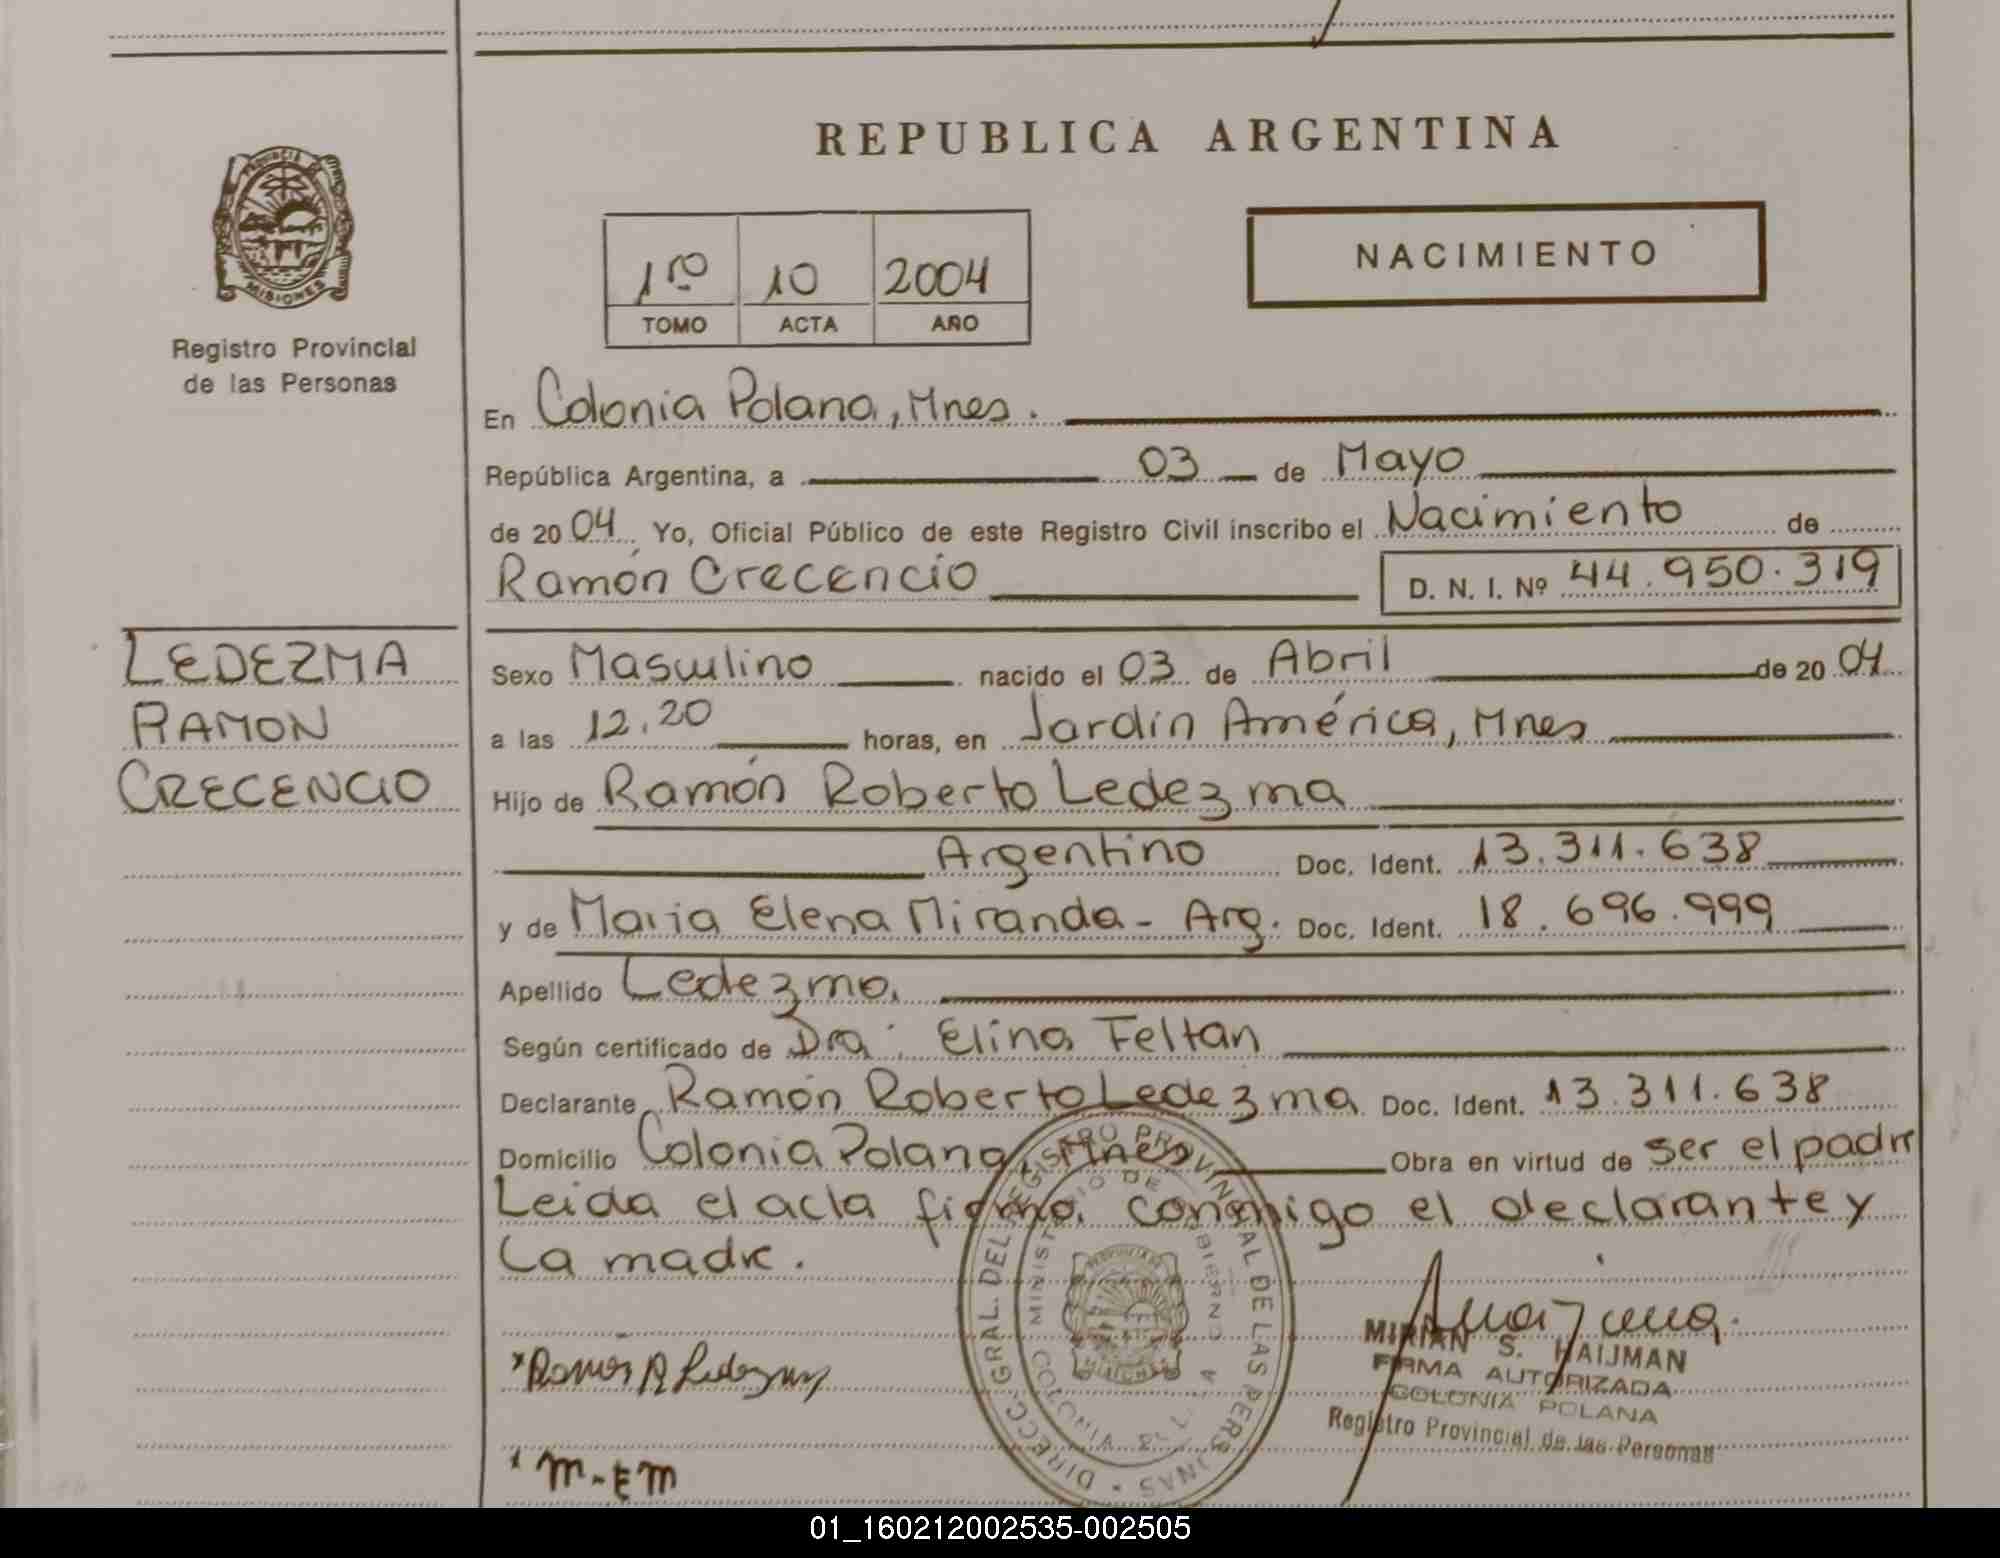 REPUBLICA ARGENTINA
PROVINCIA DE
MISIONES
Registro Provincial
de las Personas
1ro 10 2004
TOMO ACTA AÑO
NACIMIENTO
En Colonia Polana, Mnes.
República Argentina, a 03 de Mayo
de 2004 Yo, Oficial Público de este Registro Civil inscribo el Nacimiento de
Ramón Crecencio D. N. I. Nº 44.950.319
LEDEZMA
RAMON
CRECENCIO
Sexo Masculino nacido el 03 de Abril de 2004
a las 12.20 horas, en Jardín América, Mnes
Hijo de Ramón Roberto Ledezma
Argentino Doc. Ident. 13.311.638
y de Maria Elena Miranda - Arg. Doc. Ident. 18.696.999
Apellido Ledezma.
Según certificado de Dra: Elina Feltan
Declarante Ramón Roberto Ledezma Doc. Ident. 13.311.638
Domicilio Colonia Polana, Mnes Obra en virtud de ser el padre
Leida el acta firma conmigo el declarante y
La madre.
DIRECC. GRAL. DEL REGISTRO PROVINCIAL DE LAS PERSONAS
MINISTERIO DE GOBIERNO
COLONIA
Ramón R Ledezma
M-EM
MIRIAN S. HAIJMAN
FIRMA AUTORIZADA
COLONIA POLANA
Registro Provincial de las Personas
01_160212002535-002505